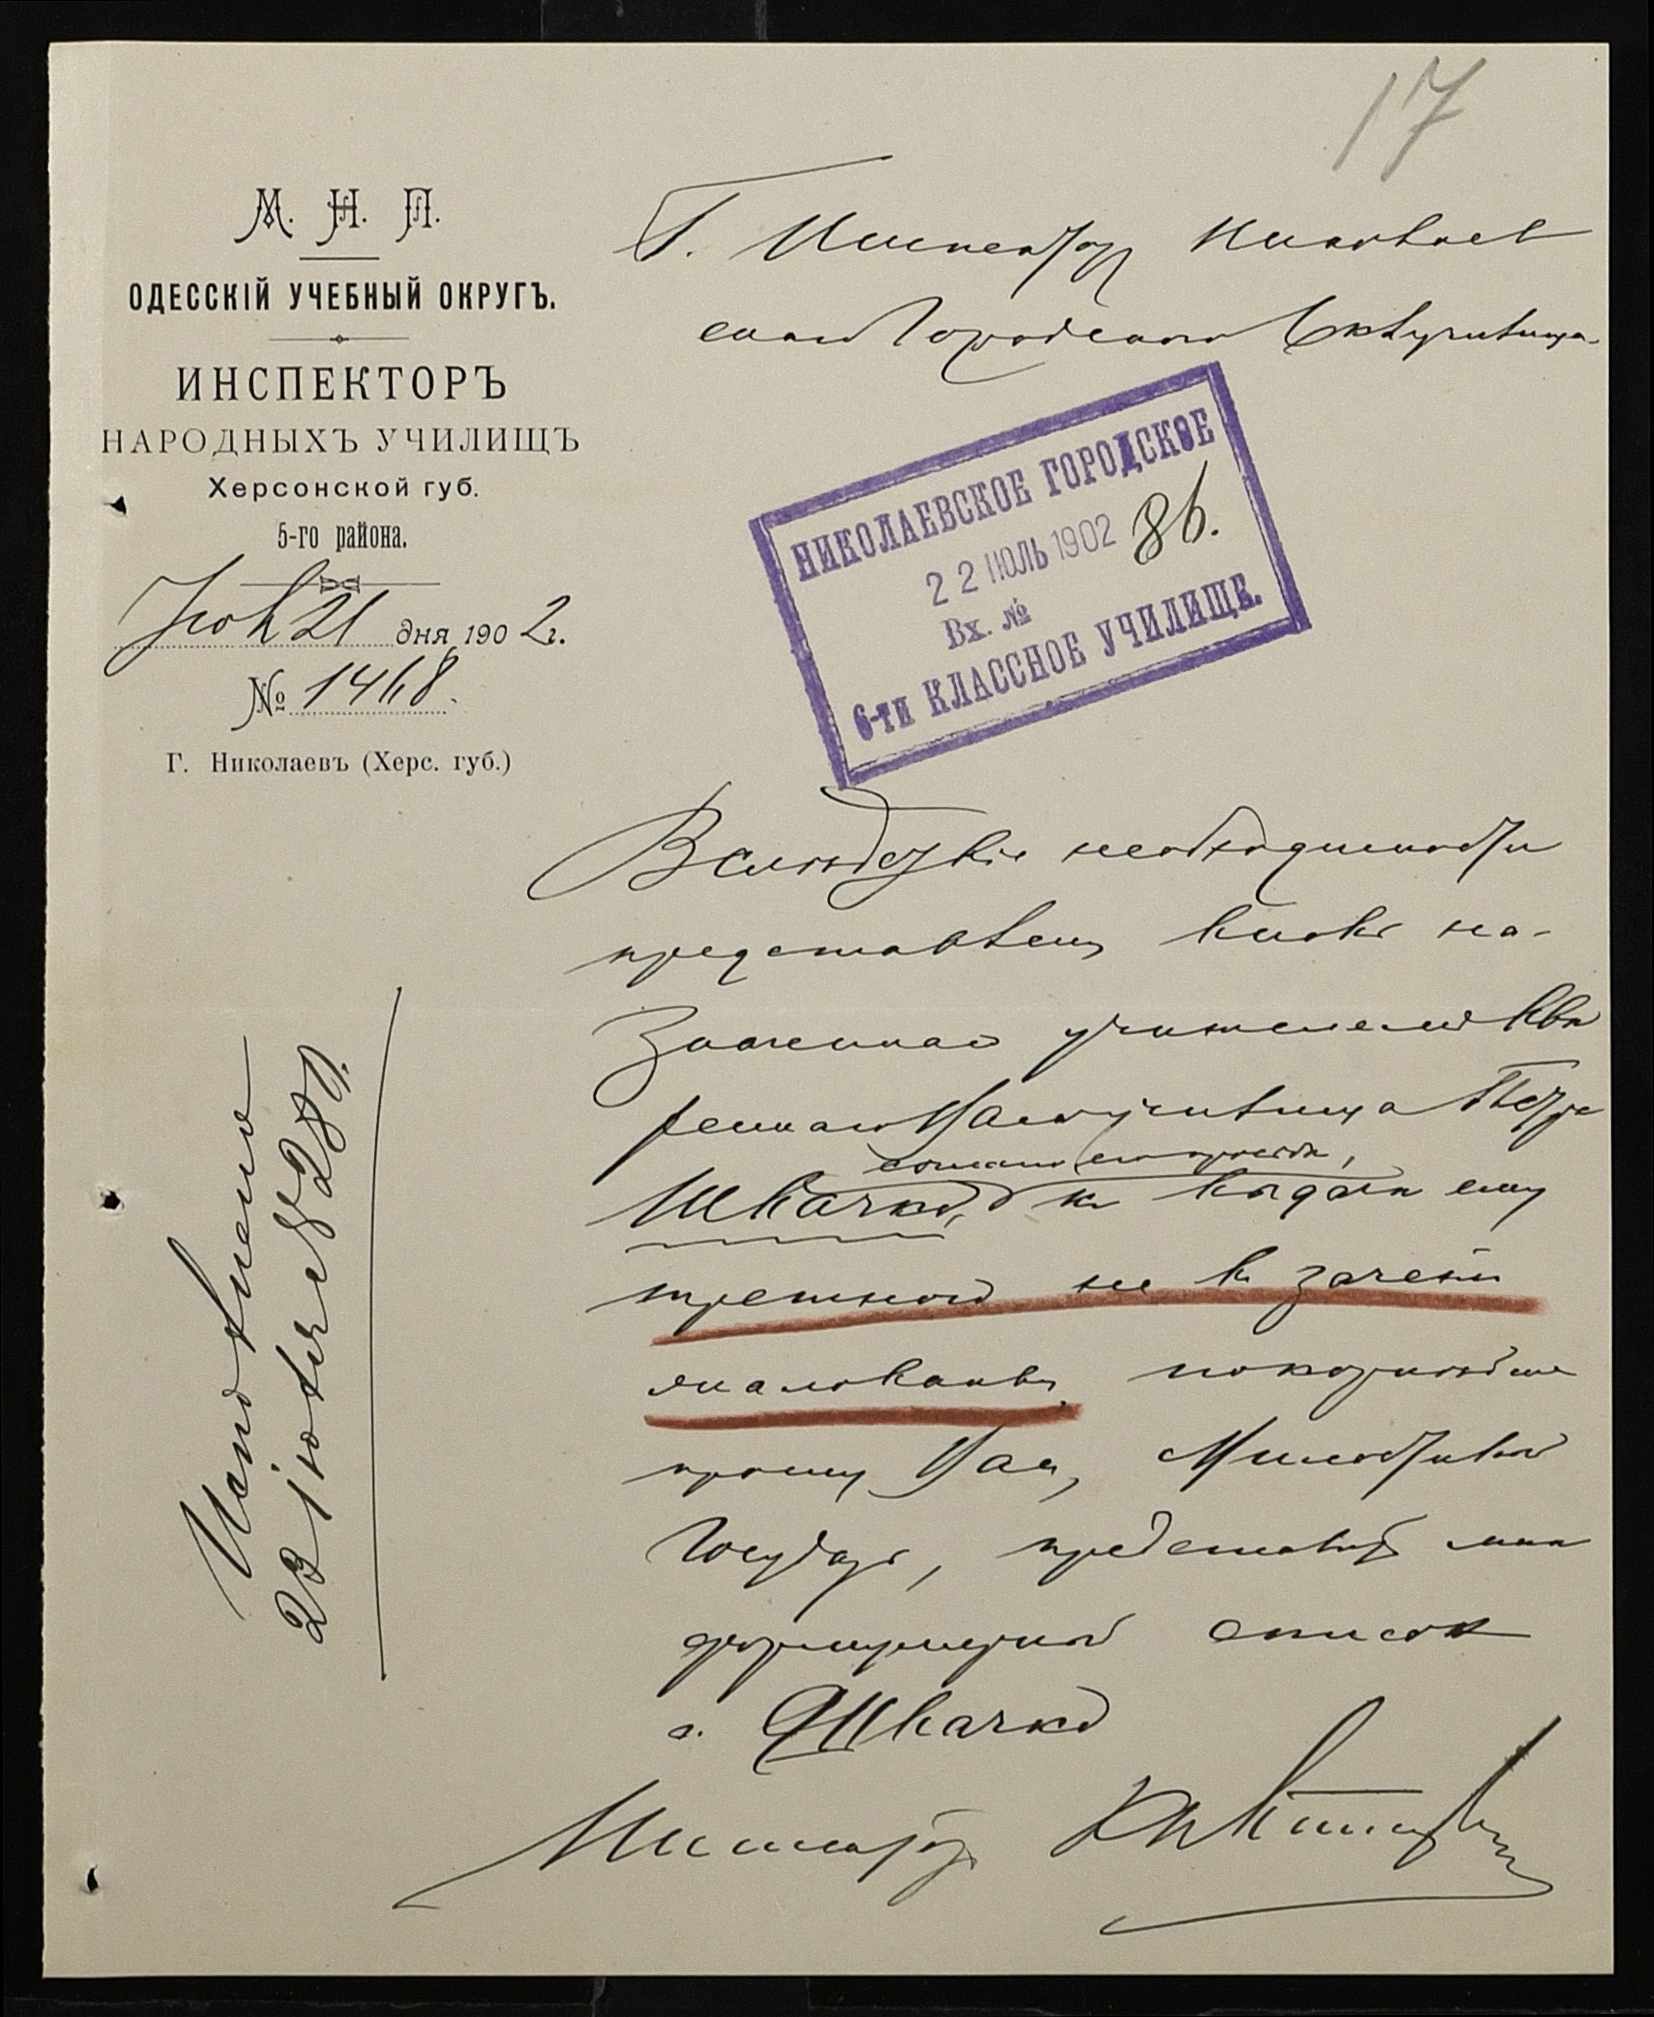 17
М. Н. П.
ОДЕССКІЙ УЧЕБНЫЙ ОКРУГЪ.
ИНСПЕКТОРЪ
НАРОДНЫХЪ УЧИЛИЩЪ
Херсонской губ.
5-го района.
Іюля 21 дня 1902 г.
№ 1468.
Г. Николаевъ (Херс. губ.)
Г. Инспектору Николаев
скаго Городского 6 кл училища.
НИКОЛАЕВСКОЕ ГОРОДСКОЕ
22 ІЮЛЬ 1902
Вх. № 86.
6-ти КЛАССНОЕ УЧИЛИЩЕ.
Вслѣдствіе необходимости
представленія вновь на-
значеннаго учителемъ
училища Петра
согласно его просьбѣ,
Швачко, къ выдачѣ ему
третного не въ зачетъ
жалованья, покорнѣйше
прошу Васъ, Милостивый
Государь, представить мнѣ
формулярный списокъ
г. Швачко
Инспекторъ
Исполнено
23 іюля № 280.